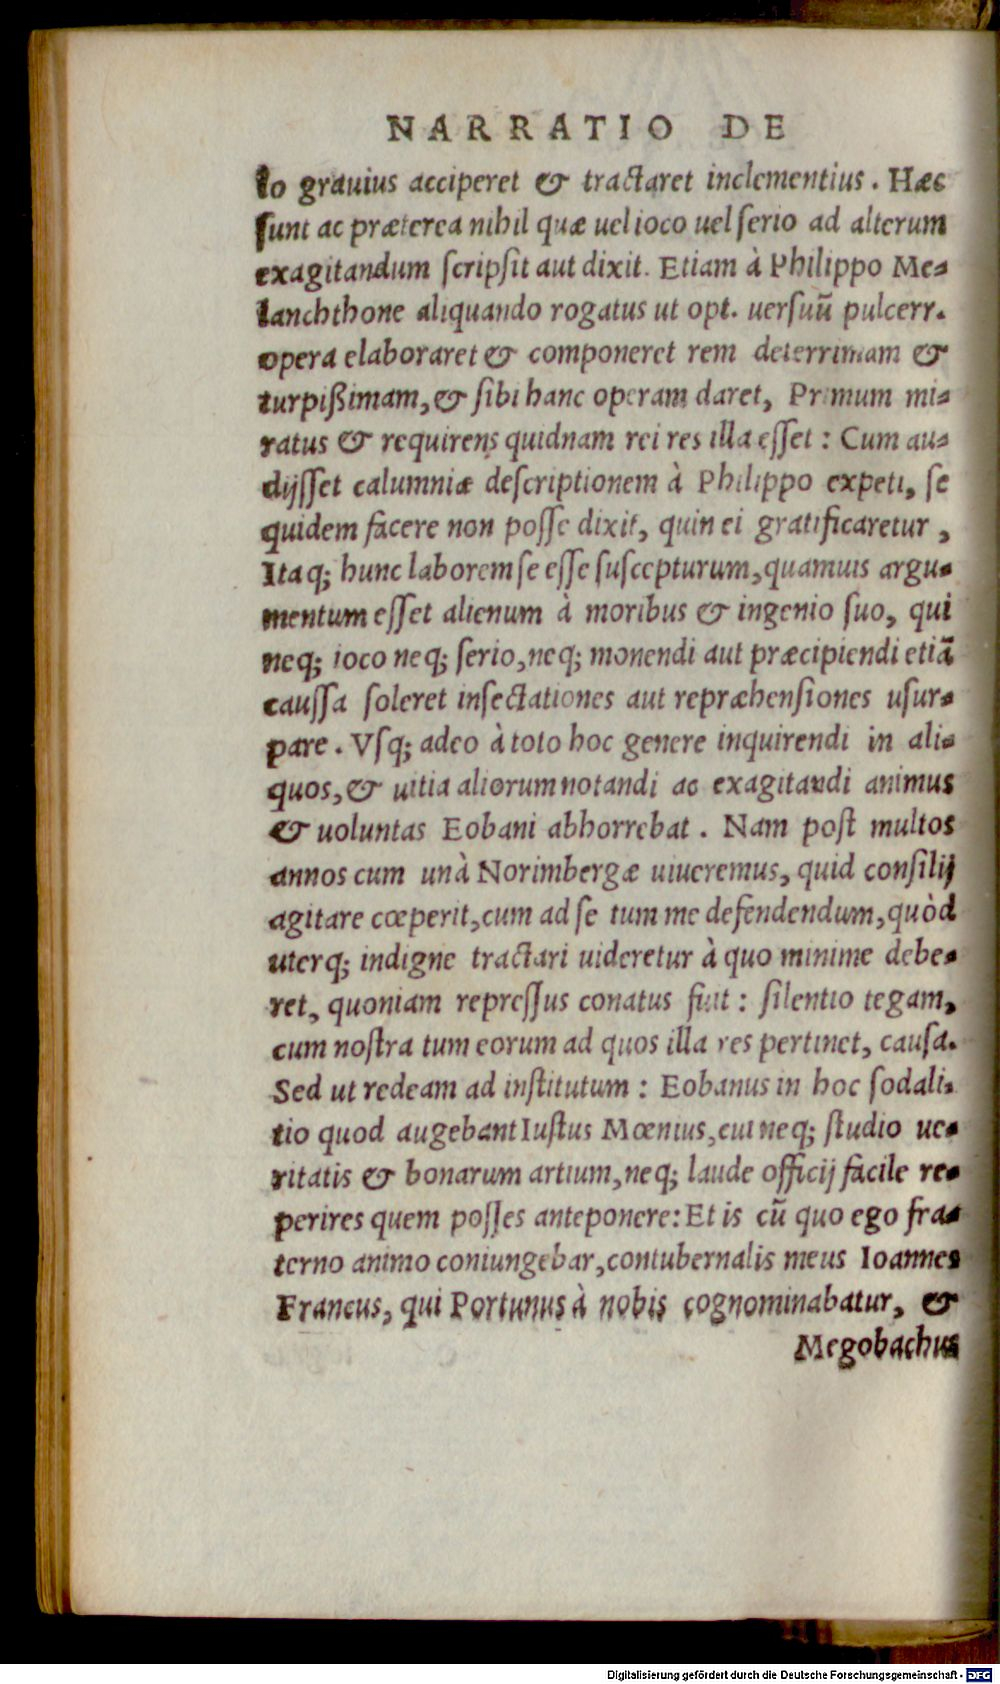 NARRATIO DE
lo grauius acciperet & tractaret inclementius. Hæc
sunt ac præterea nihil quæ uel ioco uel serio ad alterum
exagitandum scripsit aut dixit. Etiam à Philippo Me-
lanchthone aliquando rogatus ut opt. uersuū pulcerr.
opera elaboraret & componeret rem deterrimam &
turpißimam, & sibi hanc operam daret, Primum mi-
ratus & requirens quidnam rei res illa esset: Cum au-
dijsset calumniæ descriptionem à Philippo expeti, se
quidem facere non posse dixit, quin ei gratificaretur,
Itaq; hunc laborem se esse suscepturum, quamuis argu-
mentum esset alienum à moribus & ingenio suo, qui
neq; ioco neq; serio, neq; monendi aut præcipiendi etiā
caussa soleret insectationes aut repræhensiones usur-
pare. Vsq; adeo à toto hoc genere inquirendi in ali-
quos, & uitia aliorum notandi ac exagitandi animus
& uoluntas Eobani abhorrebat. Nam post multos
annos cum unà Norimbergæ uiueremus, quid consilij
agitare cœperit, cum ad se tum me defendendum, quòd
uterq; indigne tractari uideretur à quo minime debe-
ret, quoniam repressus conatus fuit: silentio tegam,
cum nostra tum eorum ad quos illa res pertinet, causa.
Sed ut redeam ad institutum: Eobanus in hoc sodali-
tio quod augebant Iustus Mœnius, cui neq; studio ue-
ritatis & bonarum artium, neq; laude officij facile re-
perires quem posses anteponere: Et is cū quo ego fra-
terno animo coniungebar, contubernalis meus Ioannes
Francus, qui Portunus à nobis cognominabatur, &
Megobachus
Digitalisierung gefördert durch die Deutsche Forschungsgemeinschaft - DFG